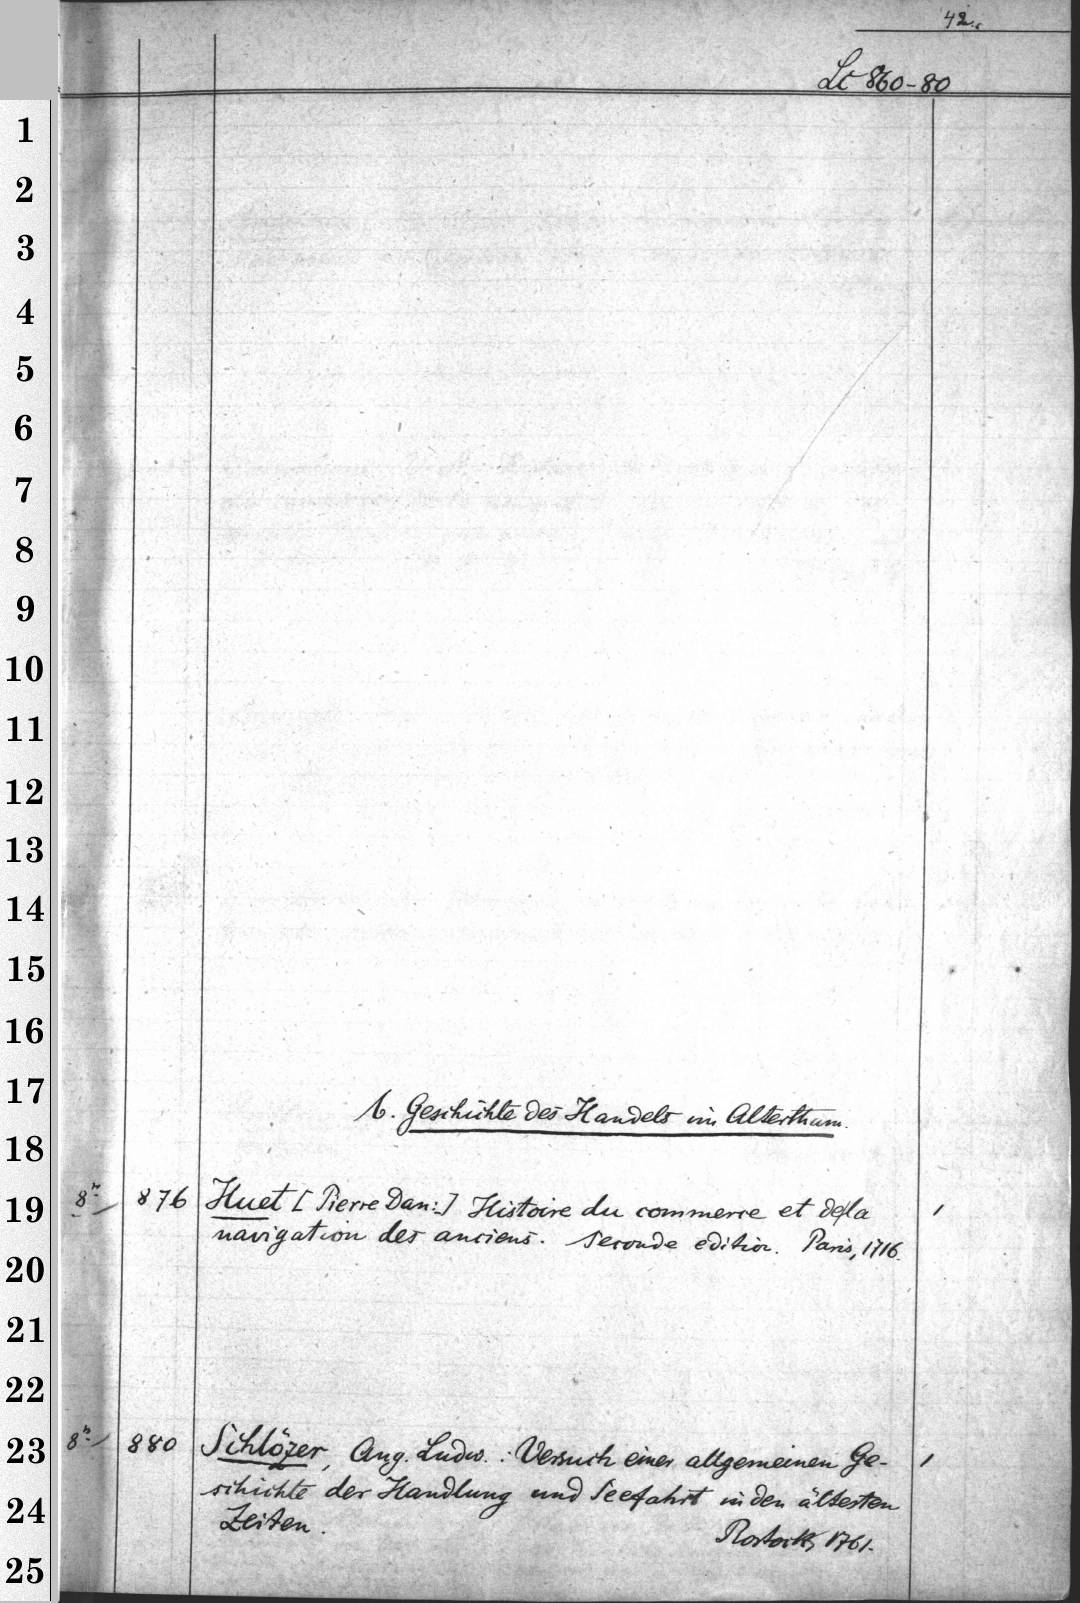 42.
Lc 860-80
b. Geschichte des Handels im Alterthum.
8° 876 Huet [Pierre Dan:] Histoire du commerce et de la 1
navigation des anciens. Seconde edition. Paris, 1716.
8° 880 Schlözer, Aug. Ludw.: Versuch einer allgemeinen Ge- 1
schichte der Handlung und Seefahrt in den ältesten
Zeiten. Rostock, 1761.
1
2
3
4
5
6
7
8
9
10
11
12
13
14
15
16
17
18
19
20
21
22
23
24
25